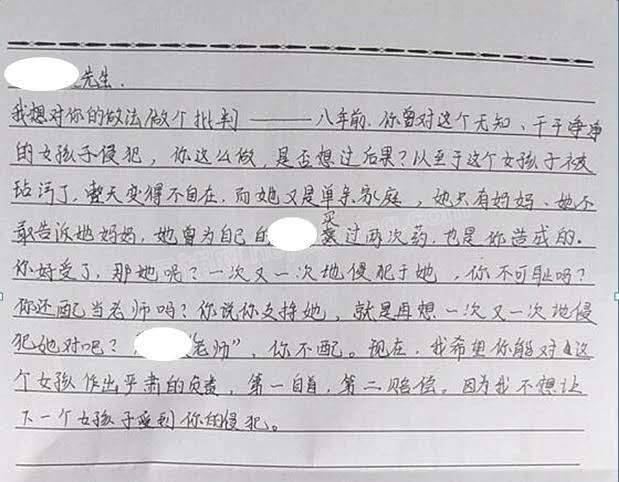 先生.
我想对你的做法做个批判——八年前.你曾对这个无知、干干净净
的女孩子侵犯，你这么做，是否想过后果？以至于这个女孩子被
玷污了，整天变得不自在.而她又是单亲家庭，她只有妈妈、她不
敢告诉她妈妈，她曾为自己的 买过两次药，也是你造成的.
你好受了，那她呢？一次又一次地侵犯于她，你不可耻吗？
你还配当老师吗？你说你支持她，就是再想一次又一次地侵
犯她对吧？“ 老师”，你不配。现在，我希望你能对这
个女孩作出严肃的负责，第一自首，第二赔偿。因为我不想让
下一个女孩子受到你的侵犯。